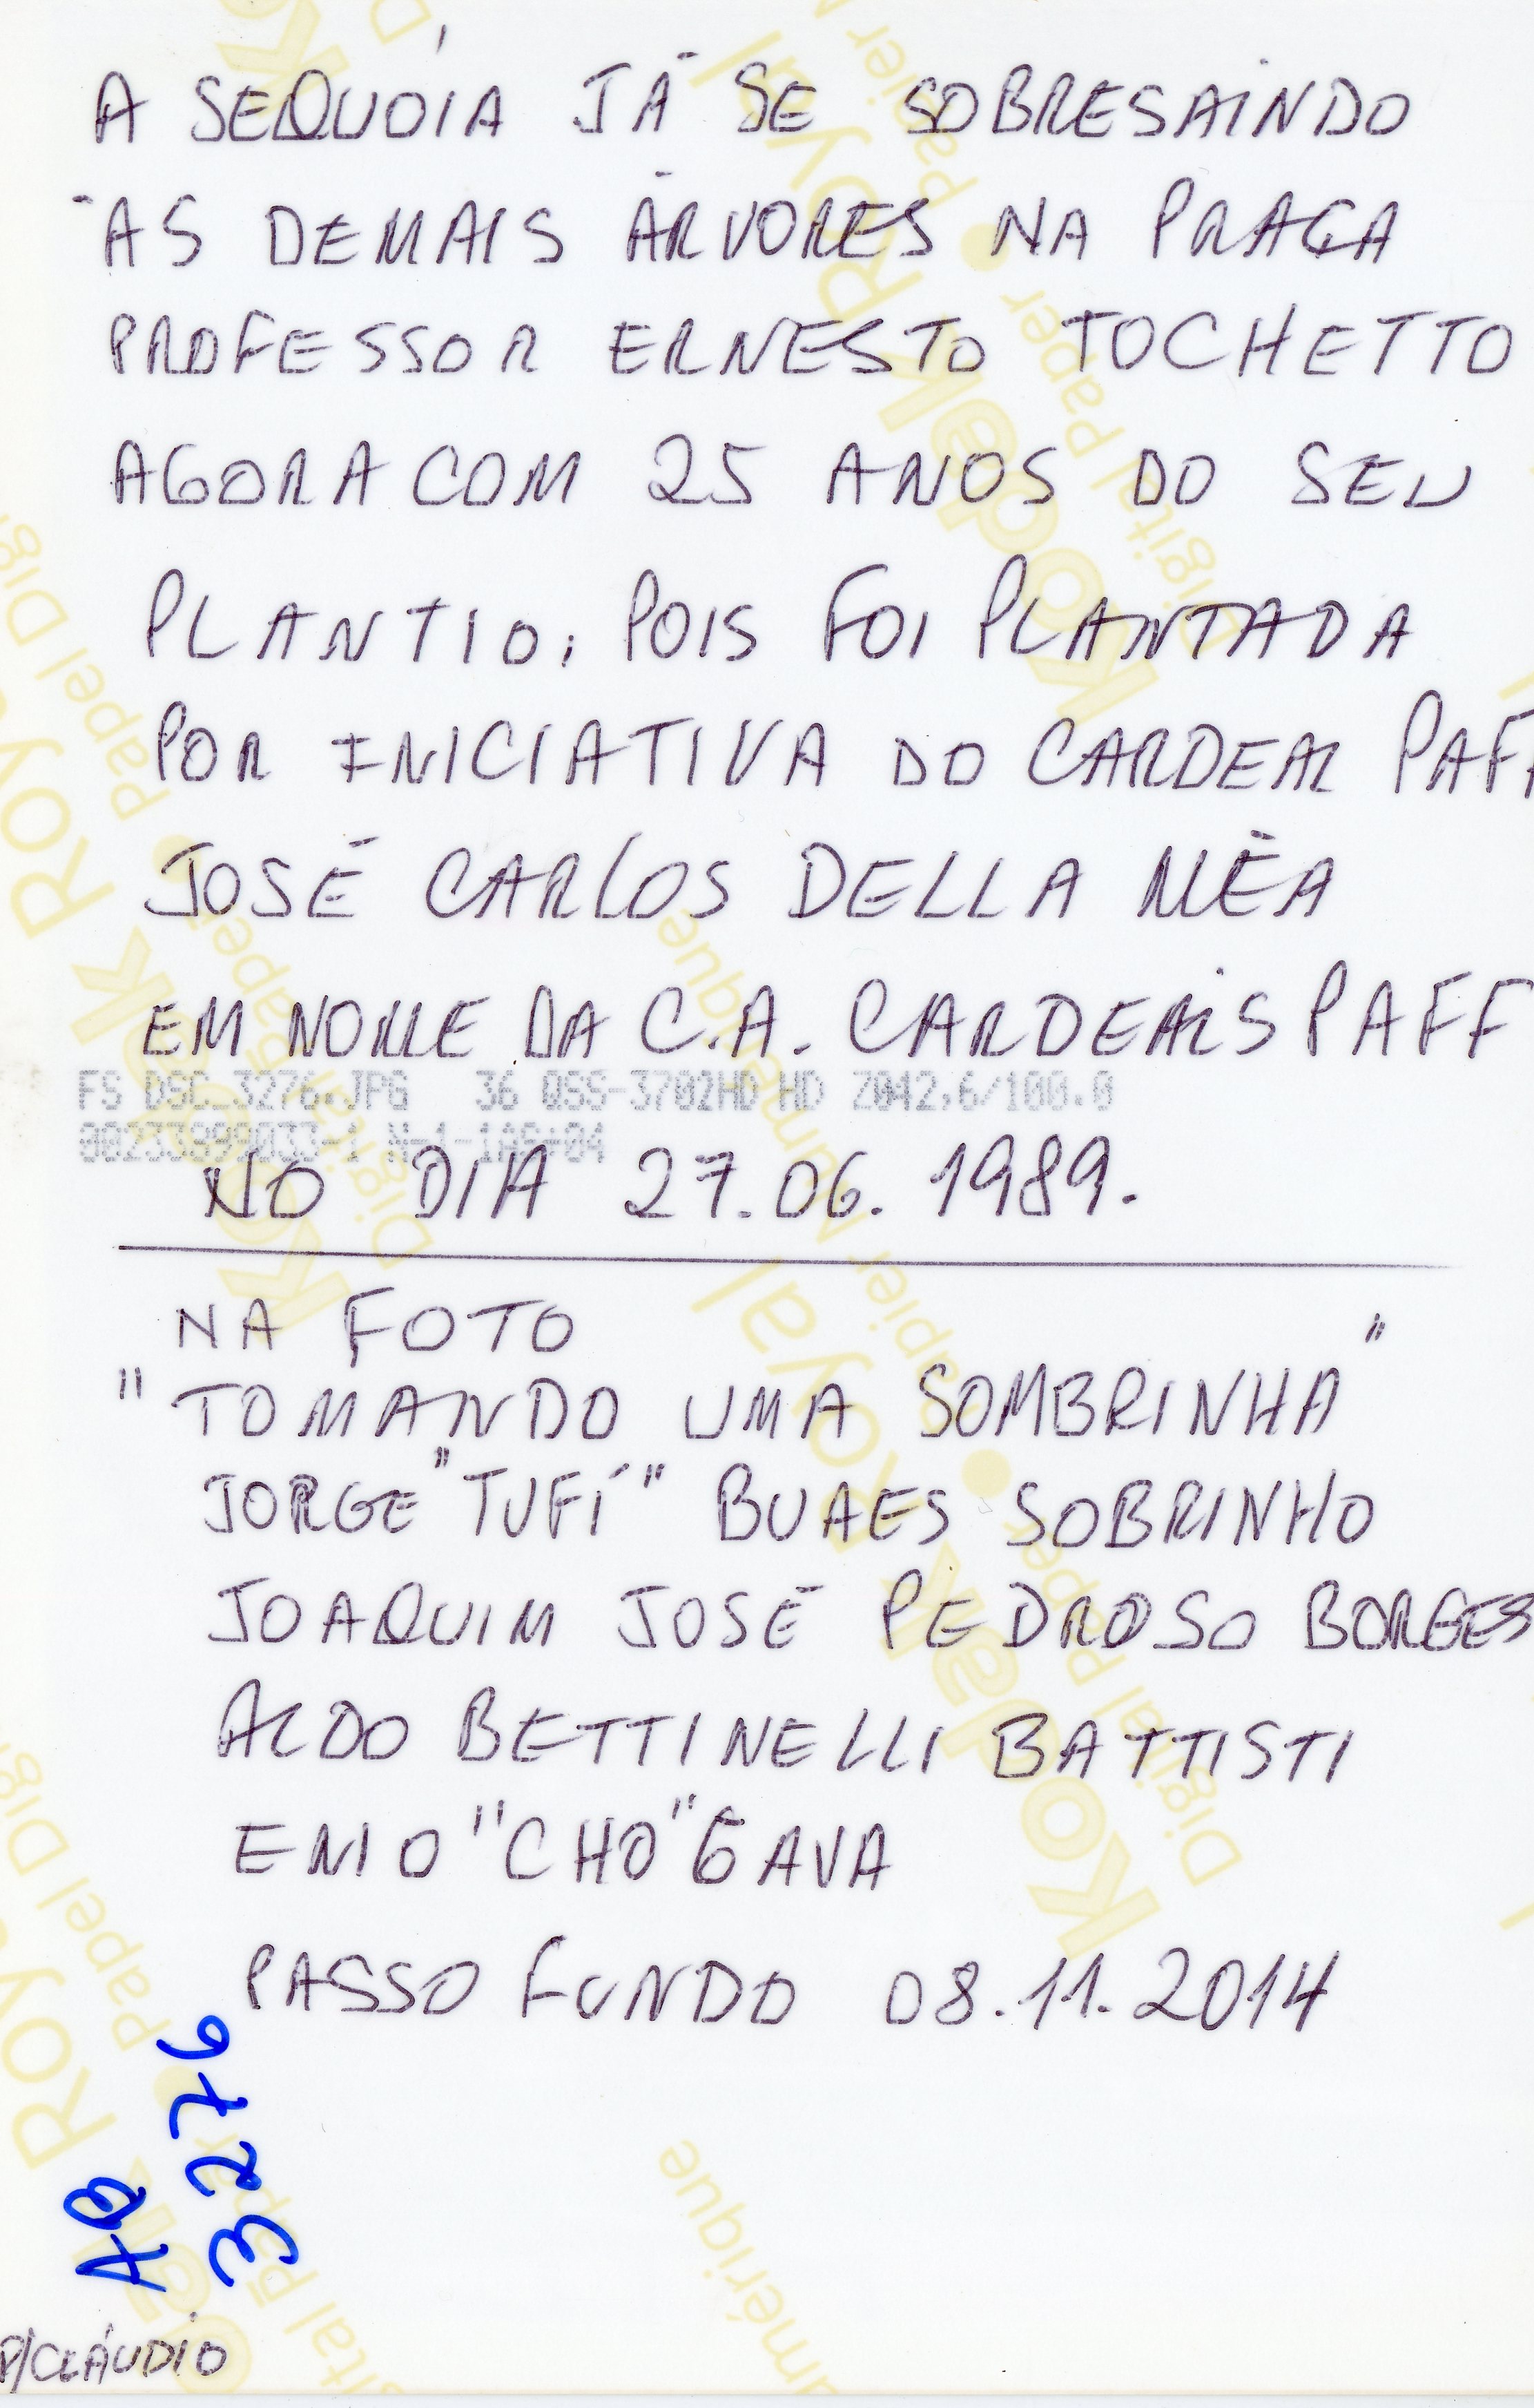 A SEQUÓIA JÁ SE SOBRESAINDO
ÀS DEMAIS ÁRVORES NA PRAÇA
PROFESSOR ERNESTO TOCHETTO
AGORA COM 25 ANOS DO SEU
PLANTIO, POIS FOI PLANTADA
POR INICIATIVA DO CARDEAL PAFF
JOSÉ CARLOS DELLA MÉA
EM NOME DA C.A. CARDEAIS PAFF
FS DSC_3276.JPG 36 QSS-3702HD HD Z042.6/100.0
NO DIA 27.06.1989.
NA FOTO
"TOMANDO UMA SOMBRINHA"
JORGE "TUFÍ" BUAES SOBRINHO
JOAQUIM JOSÉ PEDROSO BORGES
ALDO BETTINELLI BATTISTI
ENIO "CHO" GAVA
PASSO FUNDO 08.11.2014
3276
P/CLÁUDIO
Kodak Royal
Digital Paper
Papel Digital
Papier Numérique